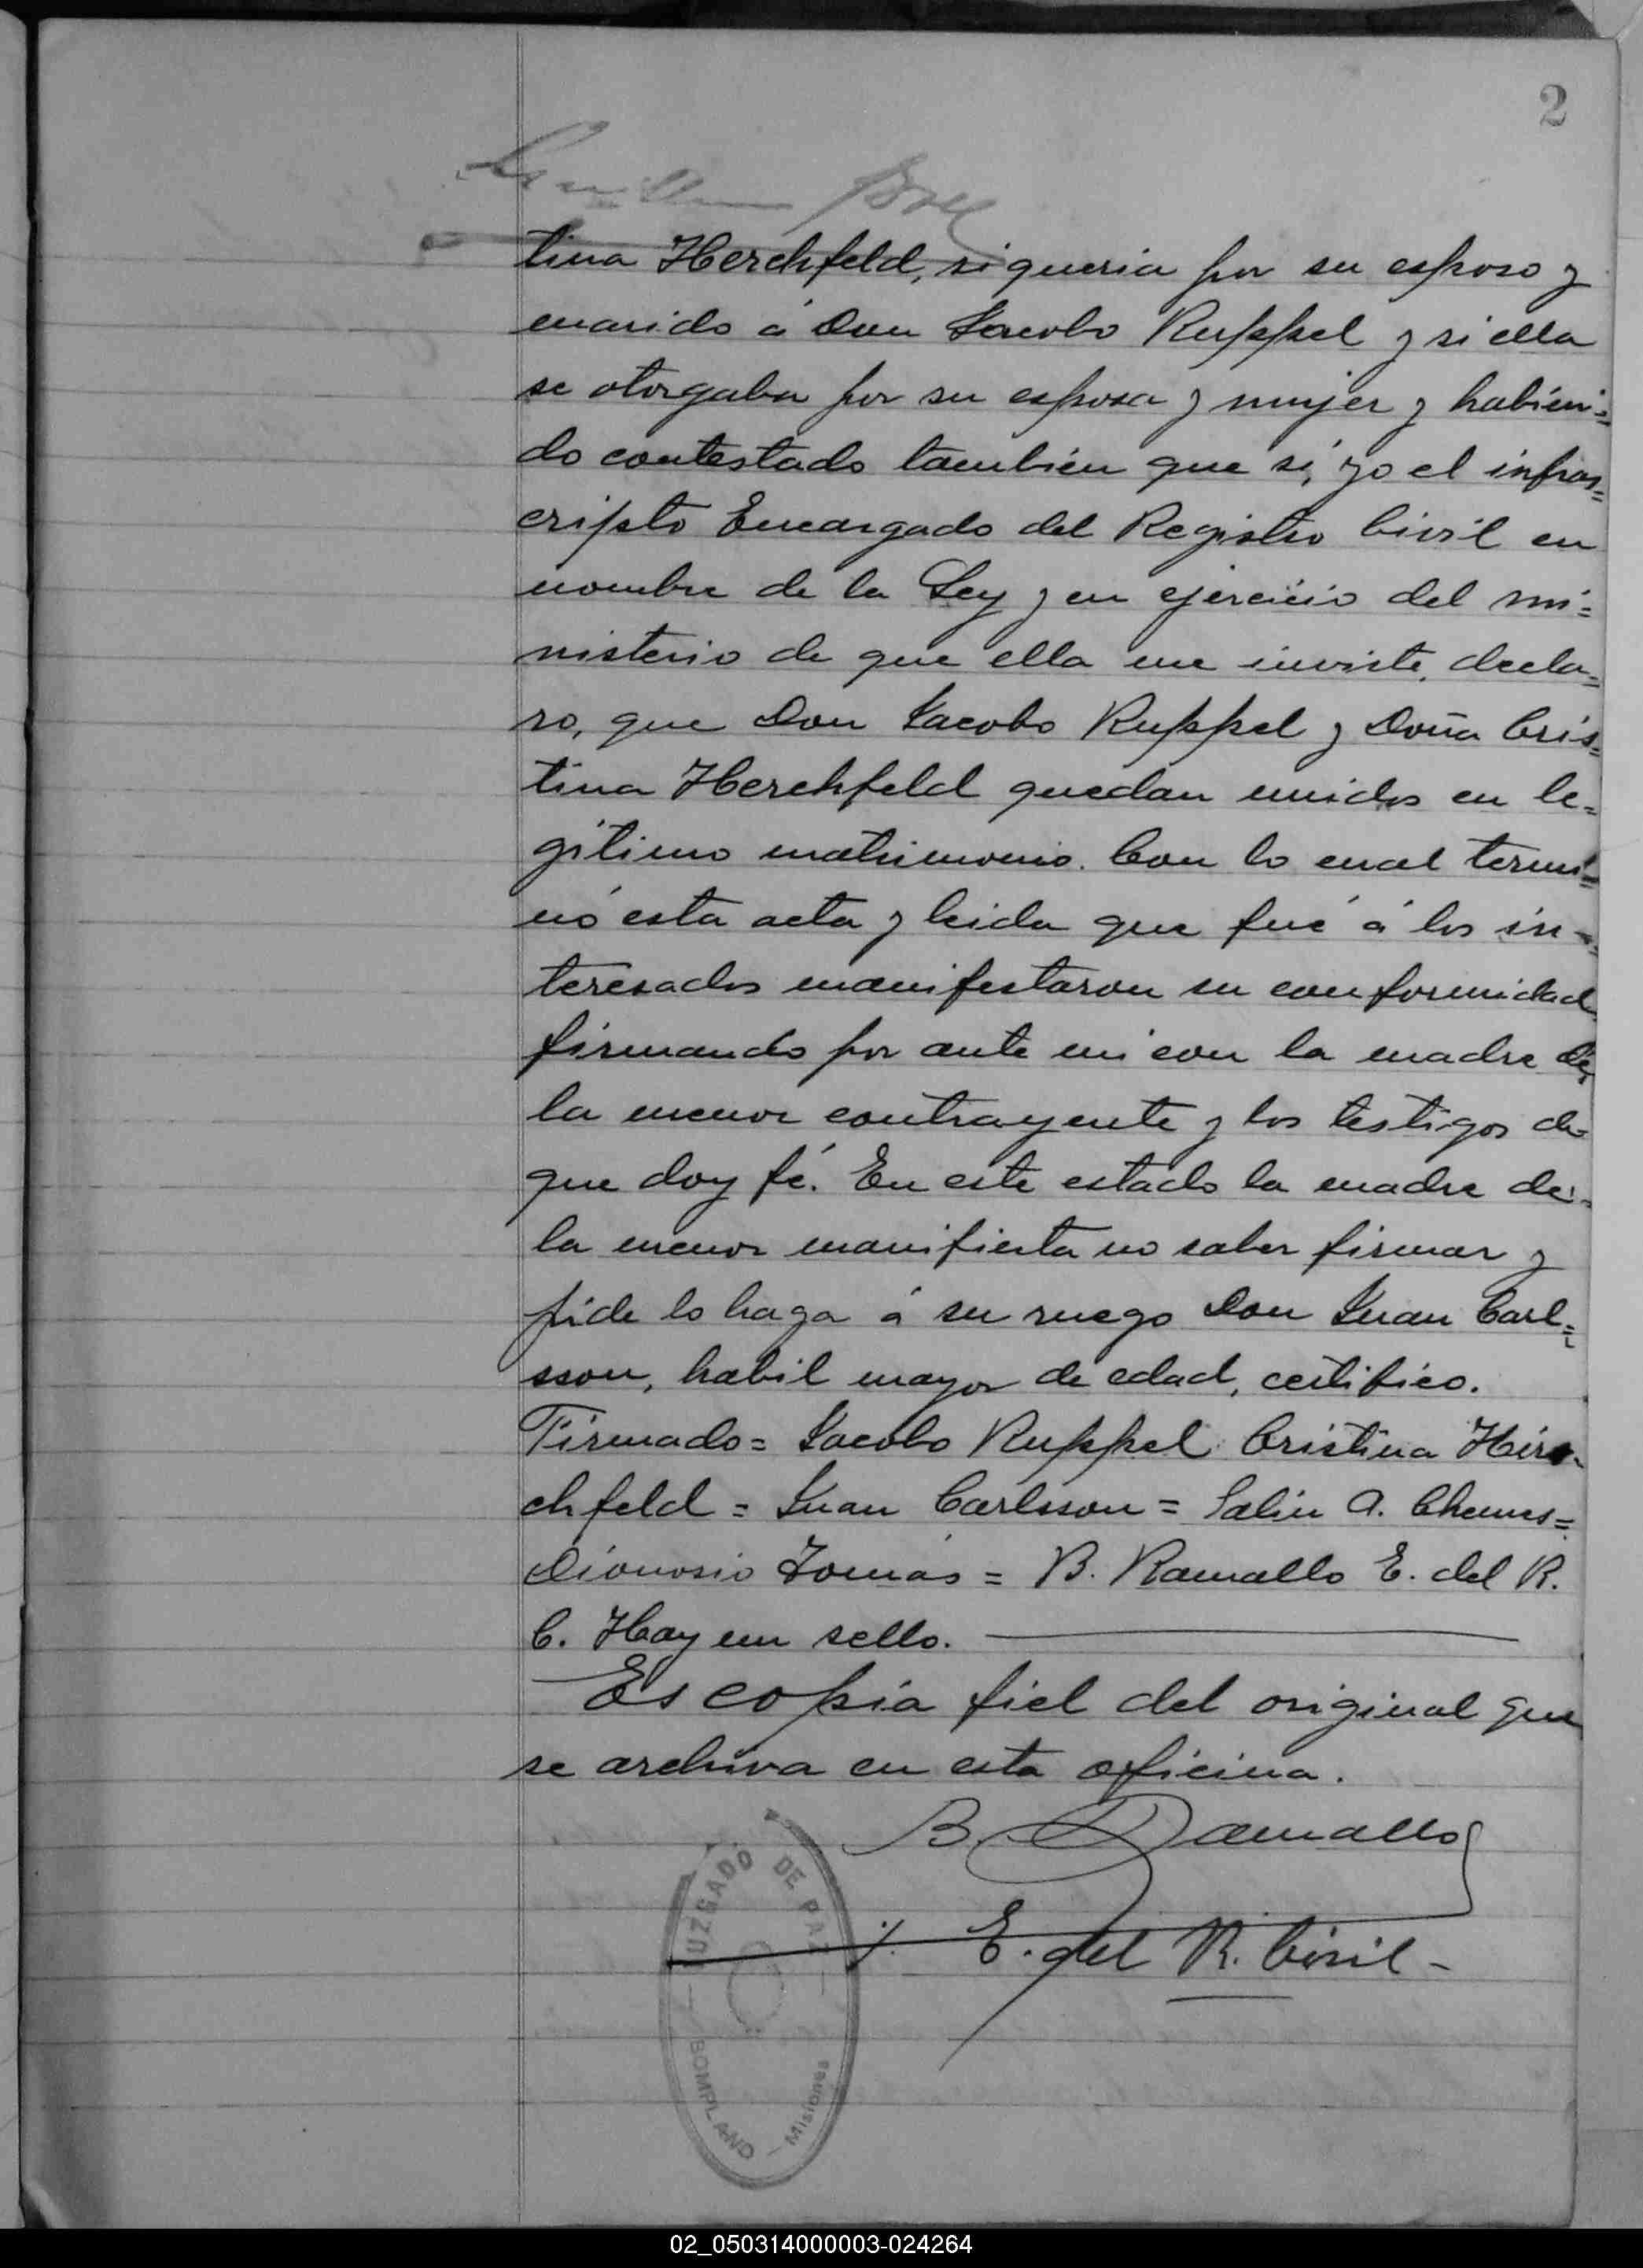 2
tina Herchfeld, si queria por su esposo y
marido á Don Jacobo Ruppel y si ella
se otorgaba por su esposa y mujer y habien=
do contestado también que sí, yo el infras=
cripto Encargado del Registro Civil en
nombre de la Ley y en ejercicio del mi=
nisterio de que ella me inviste, decla=
ro, que Don Jacobo Ruppel y Doña Cris=
tina Herchfeld quedan unidos en le=
gítimo matrimonio. Con lo cual termi=
nó esta acta y leida que fué á los in=
teresados manifestaron su conformidad
firmando por ante mi con la madre de
la menor contrayente y los testigos de
que doy fé. En este estado la madre de
la menor manifiesta no saber firmar y
pide lo haga á su ruego Don Juan Carl=
sson, habil mayor de edad, certifico.
Firmado= Jacobo Ruppel Cristina Hirs=
chfeld = Juan Carlsson = Salin A. Chemes=
Dionosio Tomás = B. Ramallo E. del R.
C. Hay un sello.
Es copia fiel del original que
se archiva en esta oficina.
B. Ramallo
E. del R. Civil -
JUZGADO DE PAZ
BOMPLAND - Misiones
02_050314000003-024264